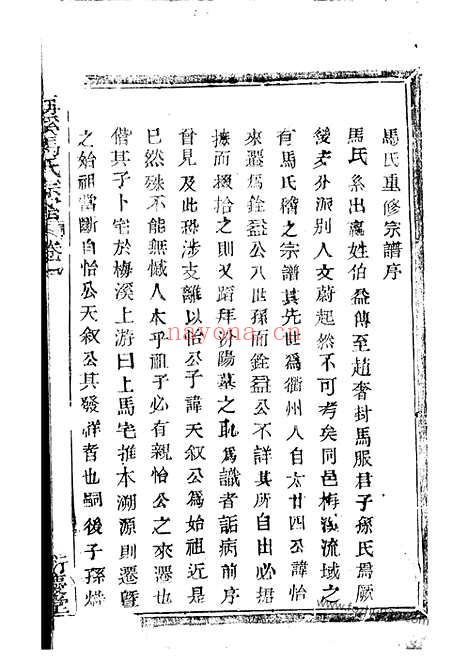 馬氏重修宗譜序
馬氏系出嬴姓伯益傳至趙奢封馬服君子孫氏焉厥
後支分派別人文蔚起然不可考矣同邑梅溪流域之
有馬氏稽之宗譜其先世爲衢州人自太廿四公諱怡
來遷爲銓益公八世孫而銓益公不詳其所自出必捂
摭而掇拾之則又蹈拜汾陽墓之耻爲識者詬病前序
曾見及此恐涉支離以怡公子諱天敘公爲始祖近是
已然殊不能無憾人本乎祖子必有親怡公之來遷也
偕其子卜宅於梅溪上游曰上馬宅推本溯源則遷暨
之始祖當斷自怡公天敘公其發祥者也嗣後子孫
馬氏宗譜 卷
慶堂
nayona.cn